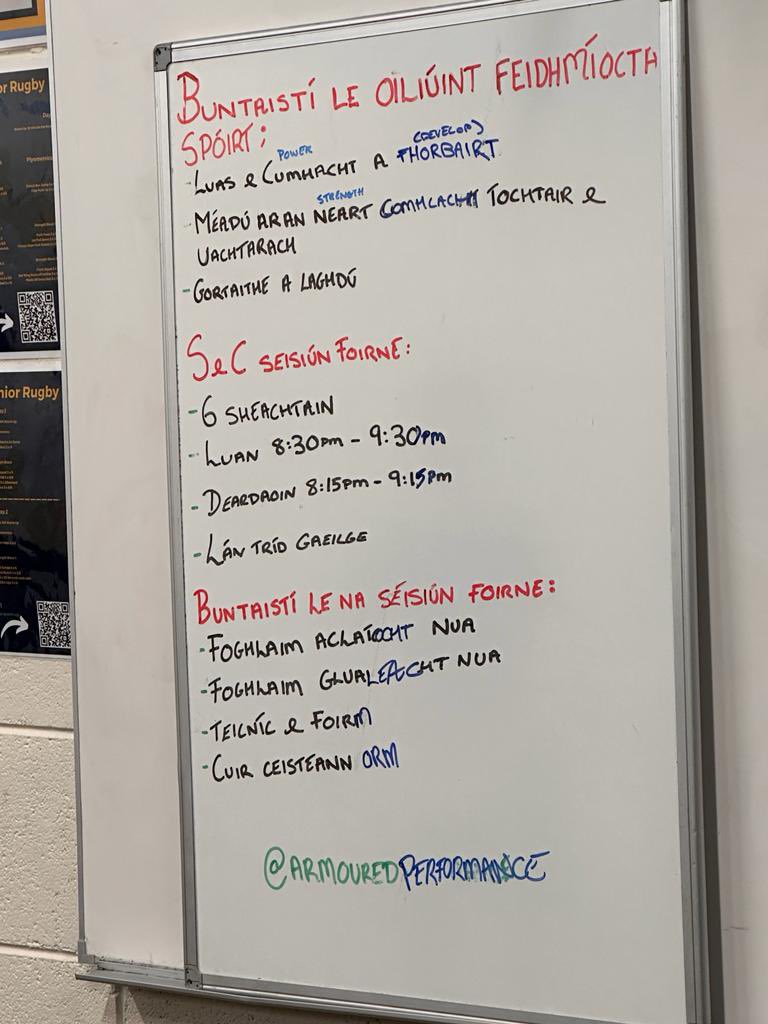 or Rugby
nior Rugby
BUNTAISTÍ LE OILIÚINT FEIDHMÍOCTA
SPÓIRT:
POWER
(DEVELOP)
- LUAS & CUMHACHT A FHORBAIRT
STRENGTH
- MÉADÚ AR AN NEART COMHLACHT ÍOCHTAIR &
UACHTARACH
- GORTAITHE A LAGHDÚ
S&C SEISIÚN FOIRNE:
- 6 SHEACHTAIN
- LUAN 8:30PM - 9:30PM
- DEARDAOIN 8:15PM - 9:15PM
- LÁN TRÍD GAEILGE
BUNTAISTÍ LE NA SÉISIÚN FOIRNE:
- FOGHLAIM ACLAÍOCHT NUA
- FOGHLAIM GLUALEACHT NUA
- TEICNÍC & FOIRM
- CUIR CEISTEANN ORM
@ARMOUREDPERFORMANCE